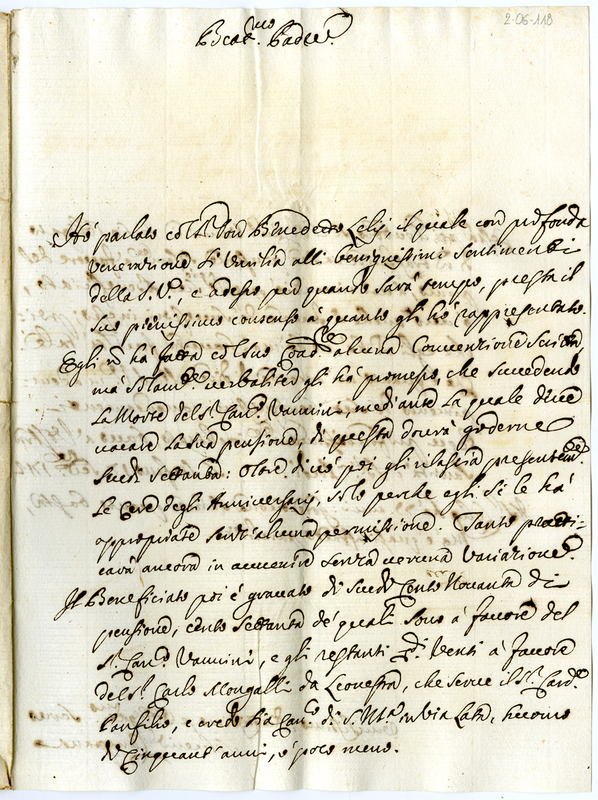 2-06-118
Beat.mo Padre.
Hò parlato col Sr. Don Benedetto Lelij, il quale con profonda
venerazione si umilia alli benignissimi sentimenti
della S.V., e adesso per quando sarà tempo, presta il
suo pienissimo consenso à quanto gli hò rappresentato.
Egli nõ hà fatta col suo Coad.re alcuna Convenzione Scritta
mà solam.te verbaliter gli hà promesso, che succedendo
la Morte del Sr. Can.co Vannini, mediante la quale deve
vacare la sua pensione, di questa dovrà goderne
scudi settanta: oltre di ciò poi gli rilascia presentem.te
le Cere degli Anniversarij, solo perche egli se le hà
appropriate senz'alcuna permissione. Tanto prati-
carà ancora in avvenire senza veruna variazione.
Il Beneficiato poi è gravato di scudi Cento Novanta di
pensione, cento settanta de quali sono à favore del
Sr. Can.co Vannini, e gli restanti venti à favore
del Sr. Carlo Mongalli da Leonessa, che serve il Sr. Card.e
Panfilio, e credo sia Can.co di S. M.a in Via Lata, huomo
di Cinquant'anni, ò poco meno.